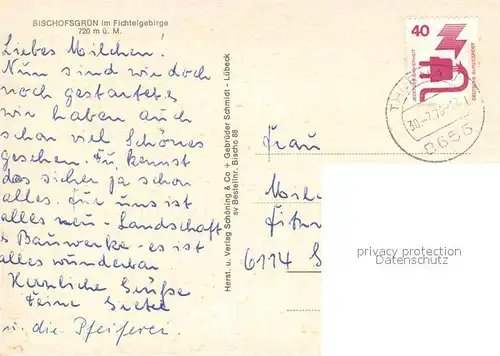 BISCHOFSGRÜN im Fichtelgebirge
720 m ü. M.
Liebes Milchen!
Nun sind wir doch
noch gestartet
wir haben auch
schon viel Schönes
gesehen. Du kennst
das sicher ja schon
alles. für uns ist
alles neu - Landschaft
Bauwerke - es ist
alles wunderbar
Herzliche Grüße
Deine
u. die Pfeiferei.
Herst. u. Verlag Schöning & Co + Gebrüder Schmidt - Lübeck
sv Bestellnr. Bischo 88
40
JEDERZEIT SICHERHEIT
DEUTSCHE BUNDESPOST
8656
Frau
6114
privacy protection
Datenschutz